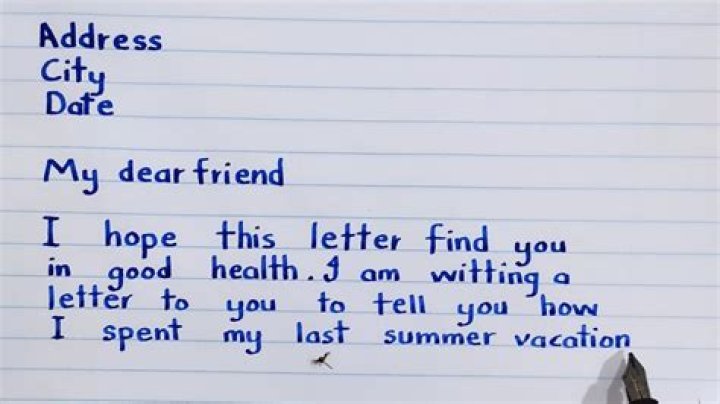 Address
City
Date
My dear friend
I hope this letter find you
in good health. I am witting a
letter to you to tell you how
I spent my last summer vacation